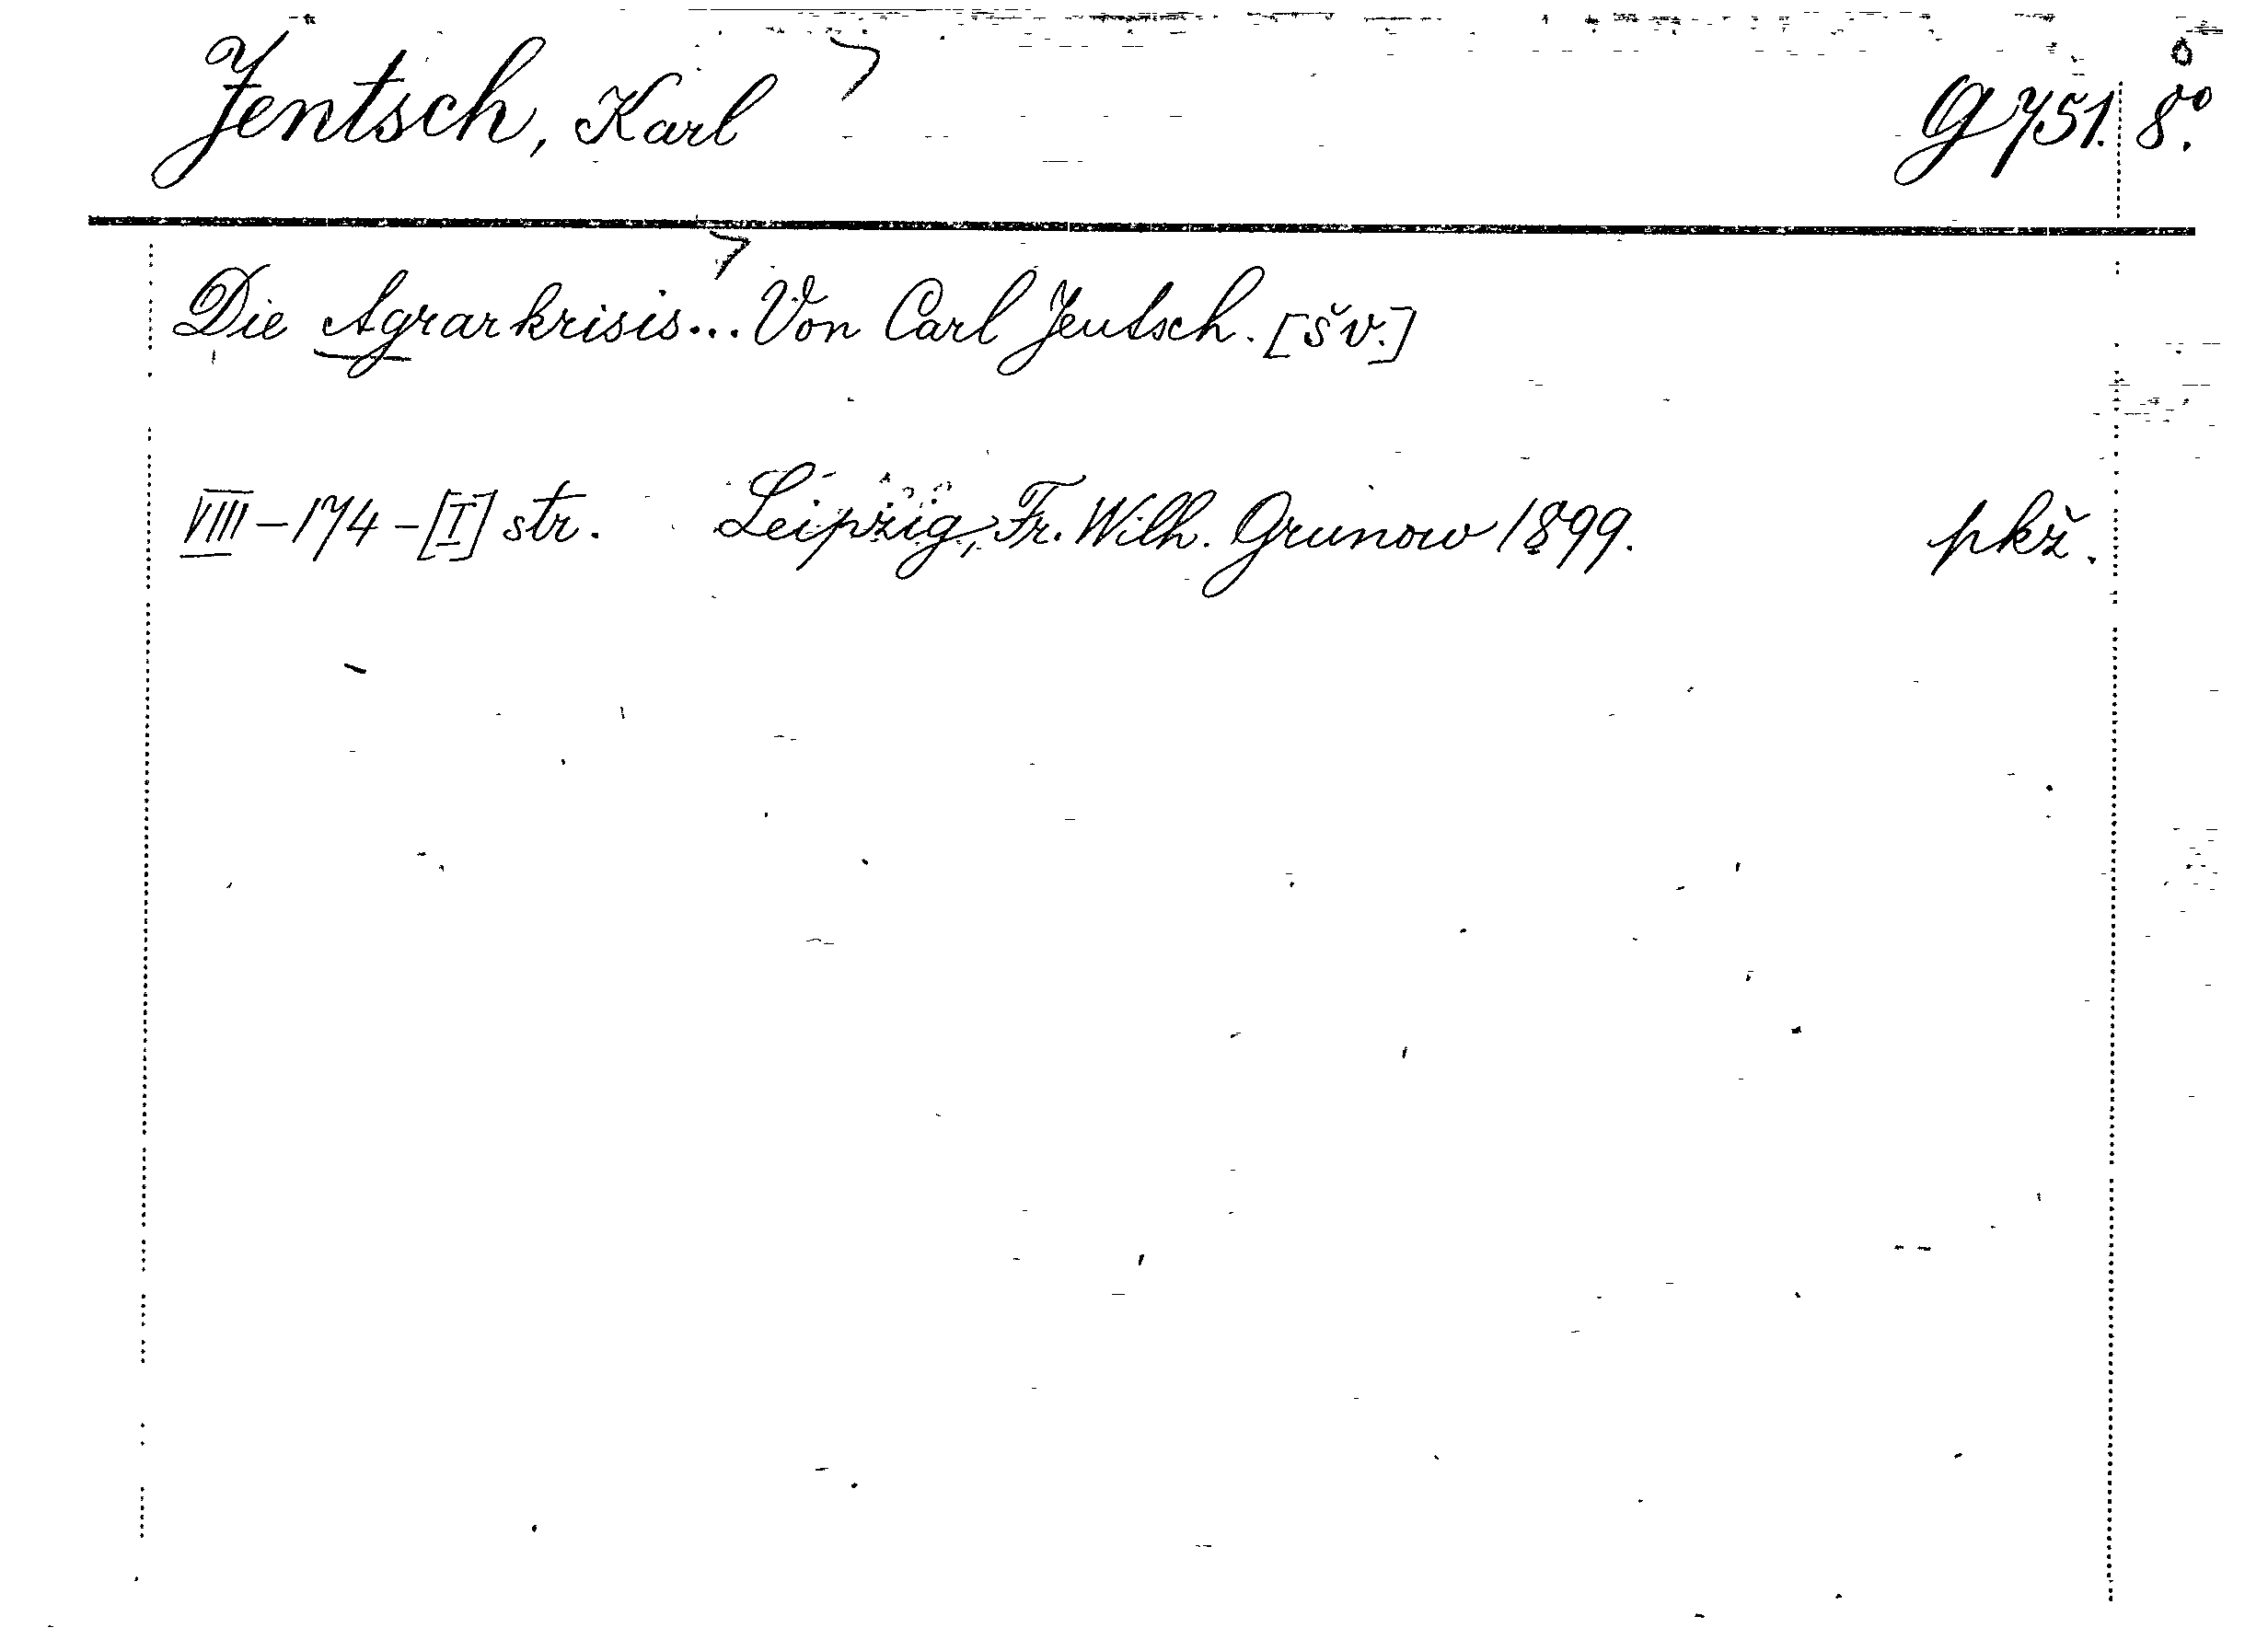 Jentsch, Karl G 751. 8º.
Die Agrarkrisis... Von Carl Jentsch. [šv.]
VIII-174-[I] str. Leipzig, Fr. Wilh. Grunow 1899. pkž.